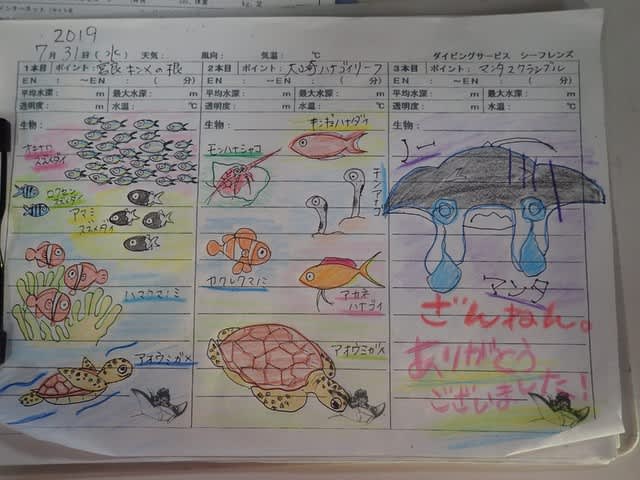 2019
7月31日(水) 天気: 風向: 気温: ℃ ダイビングサービス シーフレンズ
1本目 ポイント: 宮良キンメの根
EN: ~EN: ( 分)
平均水深: m 最大水深: m
透明度: m 水温: ℃
生物:
スズメダイ
ロクセンスズメダイ
アマミスズメダイ
ハマクマノミ
アオウミガメ
2本目 ポイント: 大崎ハナゴイリーフ
EN: ~EN: ( 分)
平均水深: m 最大水深: m
透明度: m 水温: ℃
生物:
キンギョハナダイ
モンハナシャコ
チンアナゴ
カクレクマノミ
アカネハナゴイ
アオウミガメ
3本目 ポイント: マンタスクランブル
EN: ~EN: ( 分)
平均水深: m 最大水深: m
透明度: m 水温: ℃
生物:
マンタ
ざんねん。
ありがとう
ございました!